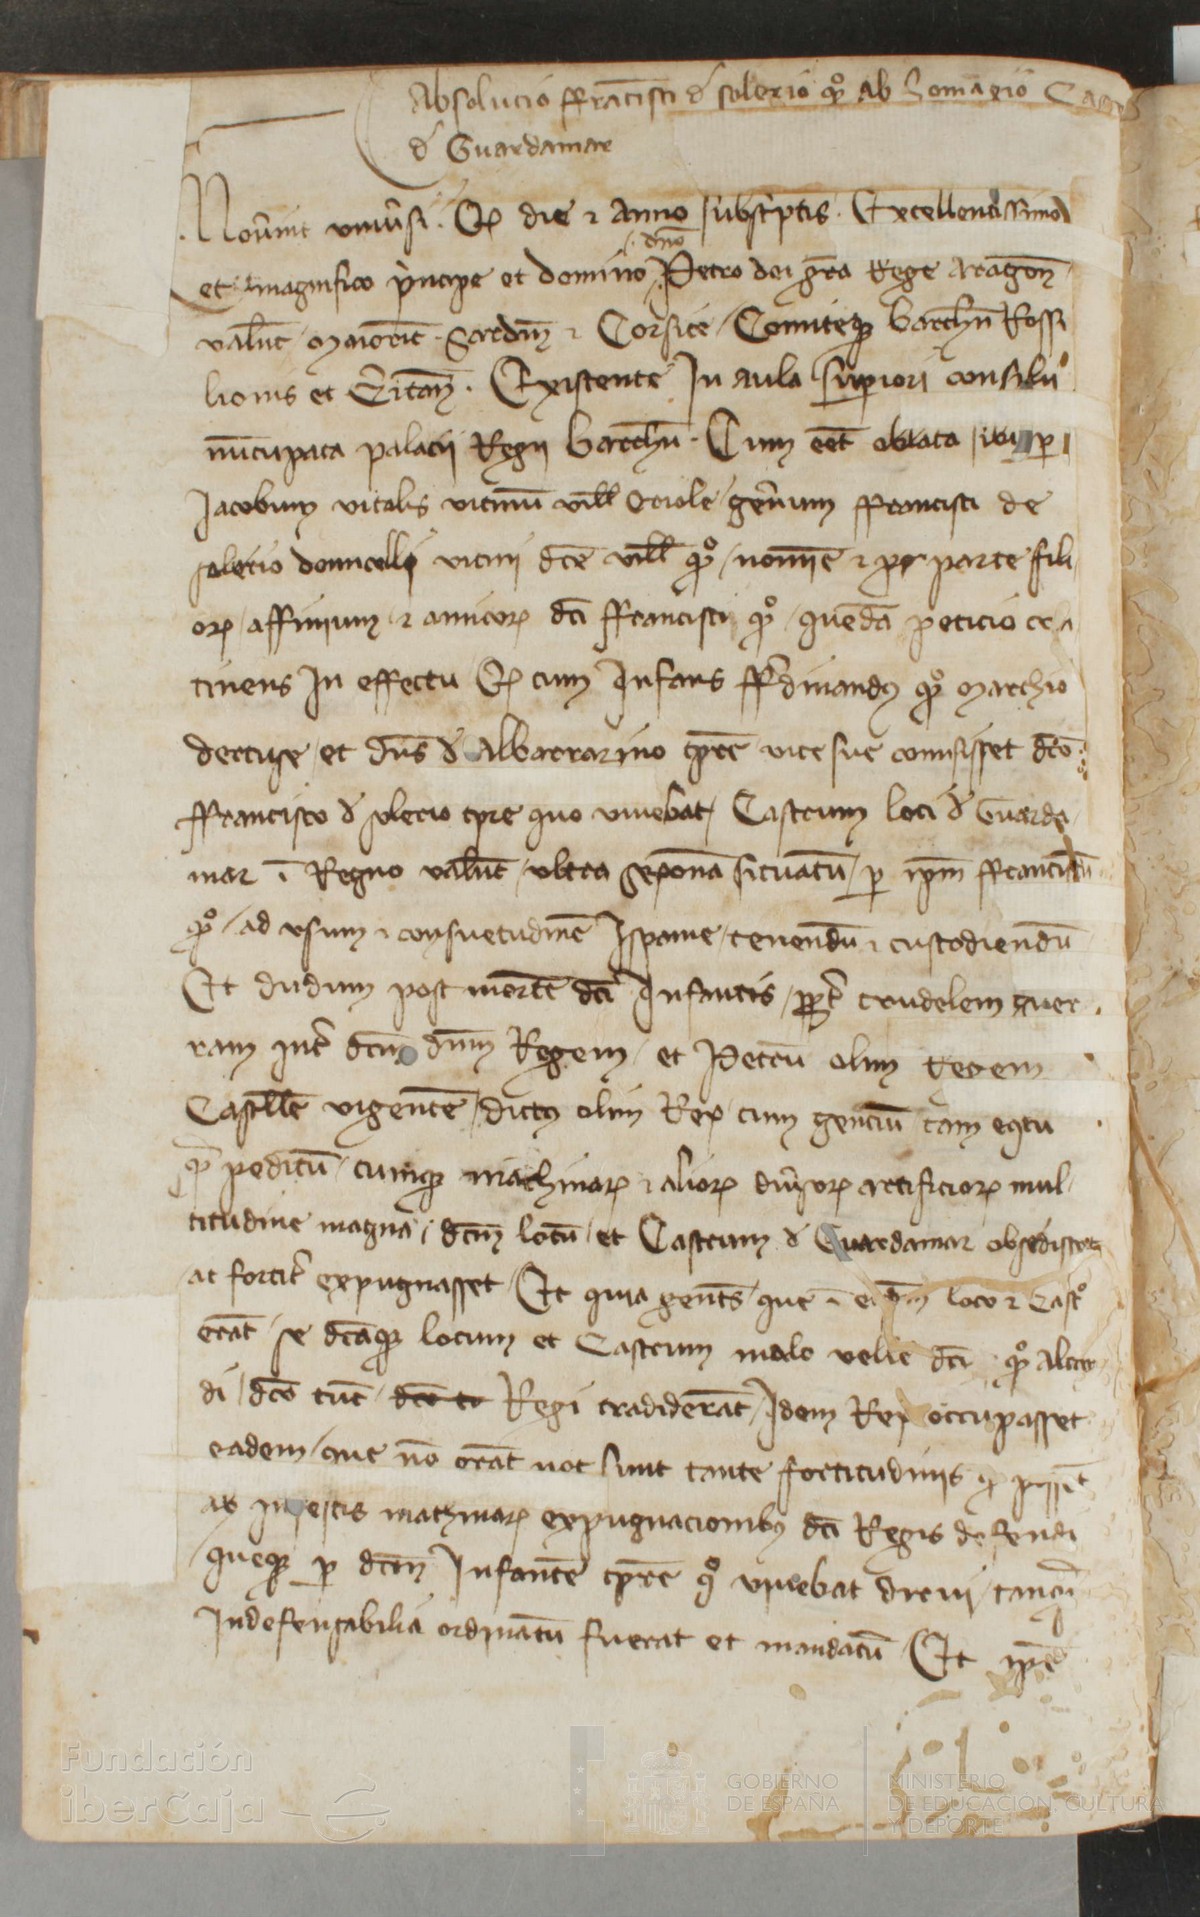 Absolucio ffrancisci d' solerio qo ab homagio Castri
d' Guardamar
Nouint vniuersi . Qd die & anno subscriptis . Excellentissimo
et magnifico principe et domino dno Petro dei gra Rege Aragon
valent maioric Sardin & Corsice Comiteqz barchn Rossi
lionis et Ceritan . Existente In aula superiori consilii
nuncupata palacii Regii barchn . Cum eet oblata sibi p
Jacobum vitalis vicinum ville Oriole generum ffrancisci de
solerio domicelli vicini dce ville qo nomine & pro parte fili
orum affinium & amicorum dci ffrancisci qo quedam peticio con
tinens In effectu Qd cum Infans fferdinandus qo marchio
dertuse et dns d' Albarrazino tpre vite sue comisisset dco
ffrancisco d' solerio tpre quo viuebat Castrum loci d' Guarda
mar in Regno valent vltra sexonam situatum p ipm ffranciscum
qo ad vsum & consuetudinem Ispanie tenendum & custodiendum
Et dudum post mortem dci Infantis propter crudelem guer
ram inter dcum dnm Regem et Petrum olim Regem
Castelle vigentem dictus olim Rex cum gencium tam equitum
qm peditum cumqz machinarum & aliorum diuersorum artificiorum mul
titudine magna dcm locum et Castrum d' Guardamar obsedisset
ac fortiter expugnasset Et quia gentes que in eisdem loco & Castro
erant se dcaqz locum et Castrum malo velle dci qo
di dco tunc dco to Regi tradiderant Idem Rex occupasset
eadem que no erant nec sunt tante fortitudinis qd possent
ab infestis machinarum expugnacionibus dci Regis defendi
queqz p dcm Infantem tpre quo viuebat dirui tanqm
Indefensabilia ordinatum fuerat et mandatum Et ipse
Fundación
iberCaja
GOBIERNO
DE ESPAÑA
MINISTERIO
DE EDUCACIÓN, CULTURA
Y DEPORTE